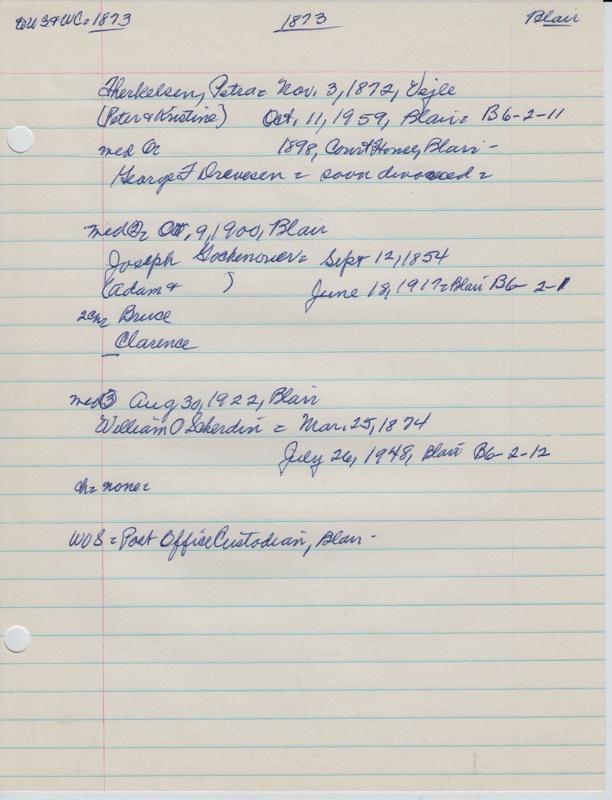 WC = 1873 1873 Blair
Therkelsen, Petra = Nov. 3, 1872, Vejle
(Peter & Kristine) Oct. 11, 1959, Blair = B6-2-11
med 1898, Court House, Blair -
George F Drevesen = soon divorced =
med 2 = Oct. 9, 1900, Blair
Joseph Gochenouer = Sept 12, 1854
(Adam & ) June 18, 1917 = Blair B6-2-11
2ch = Bruce
Clarence
med 3 Aug 30, 1922, Blair
William O Scherdin = Mar. 25, 1874
July 26, 1948, Blair B6-2-12
ch = none =
WOS = Post Office Custodian, Blair -